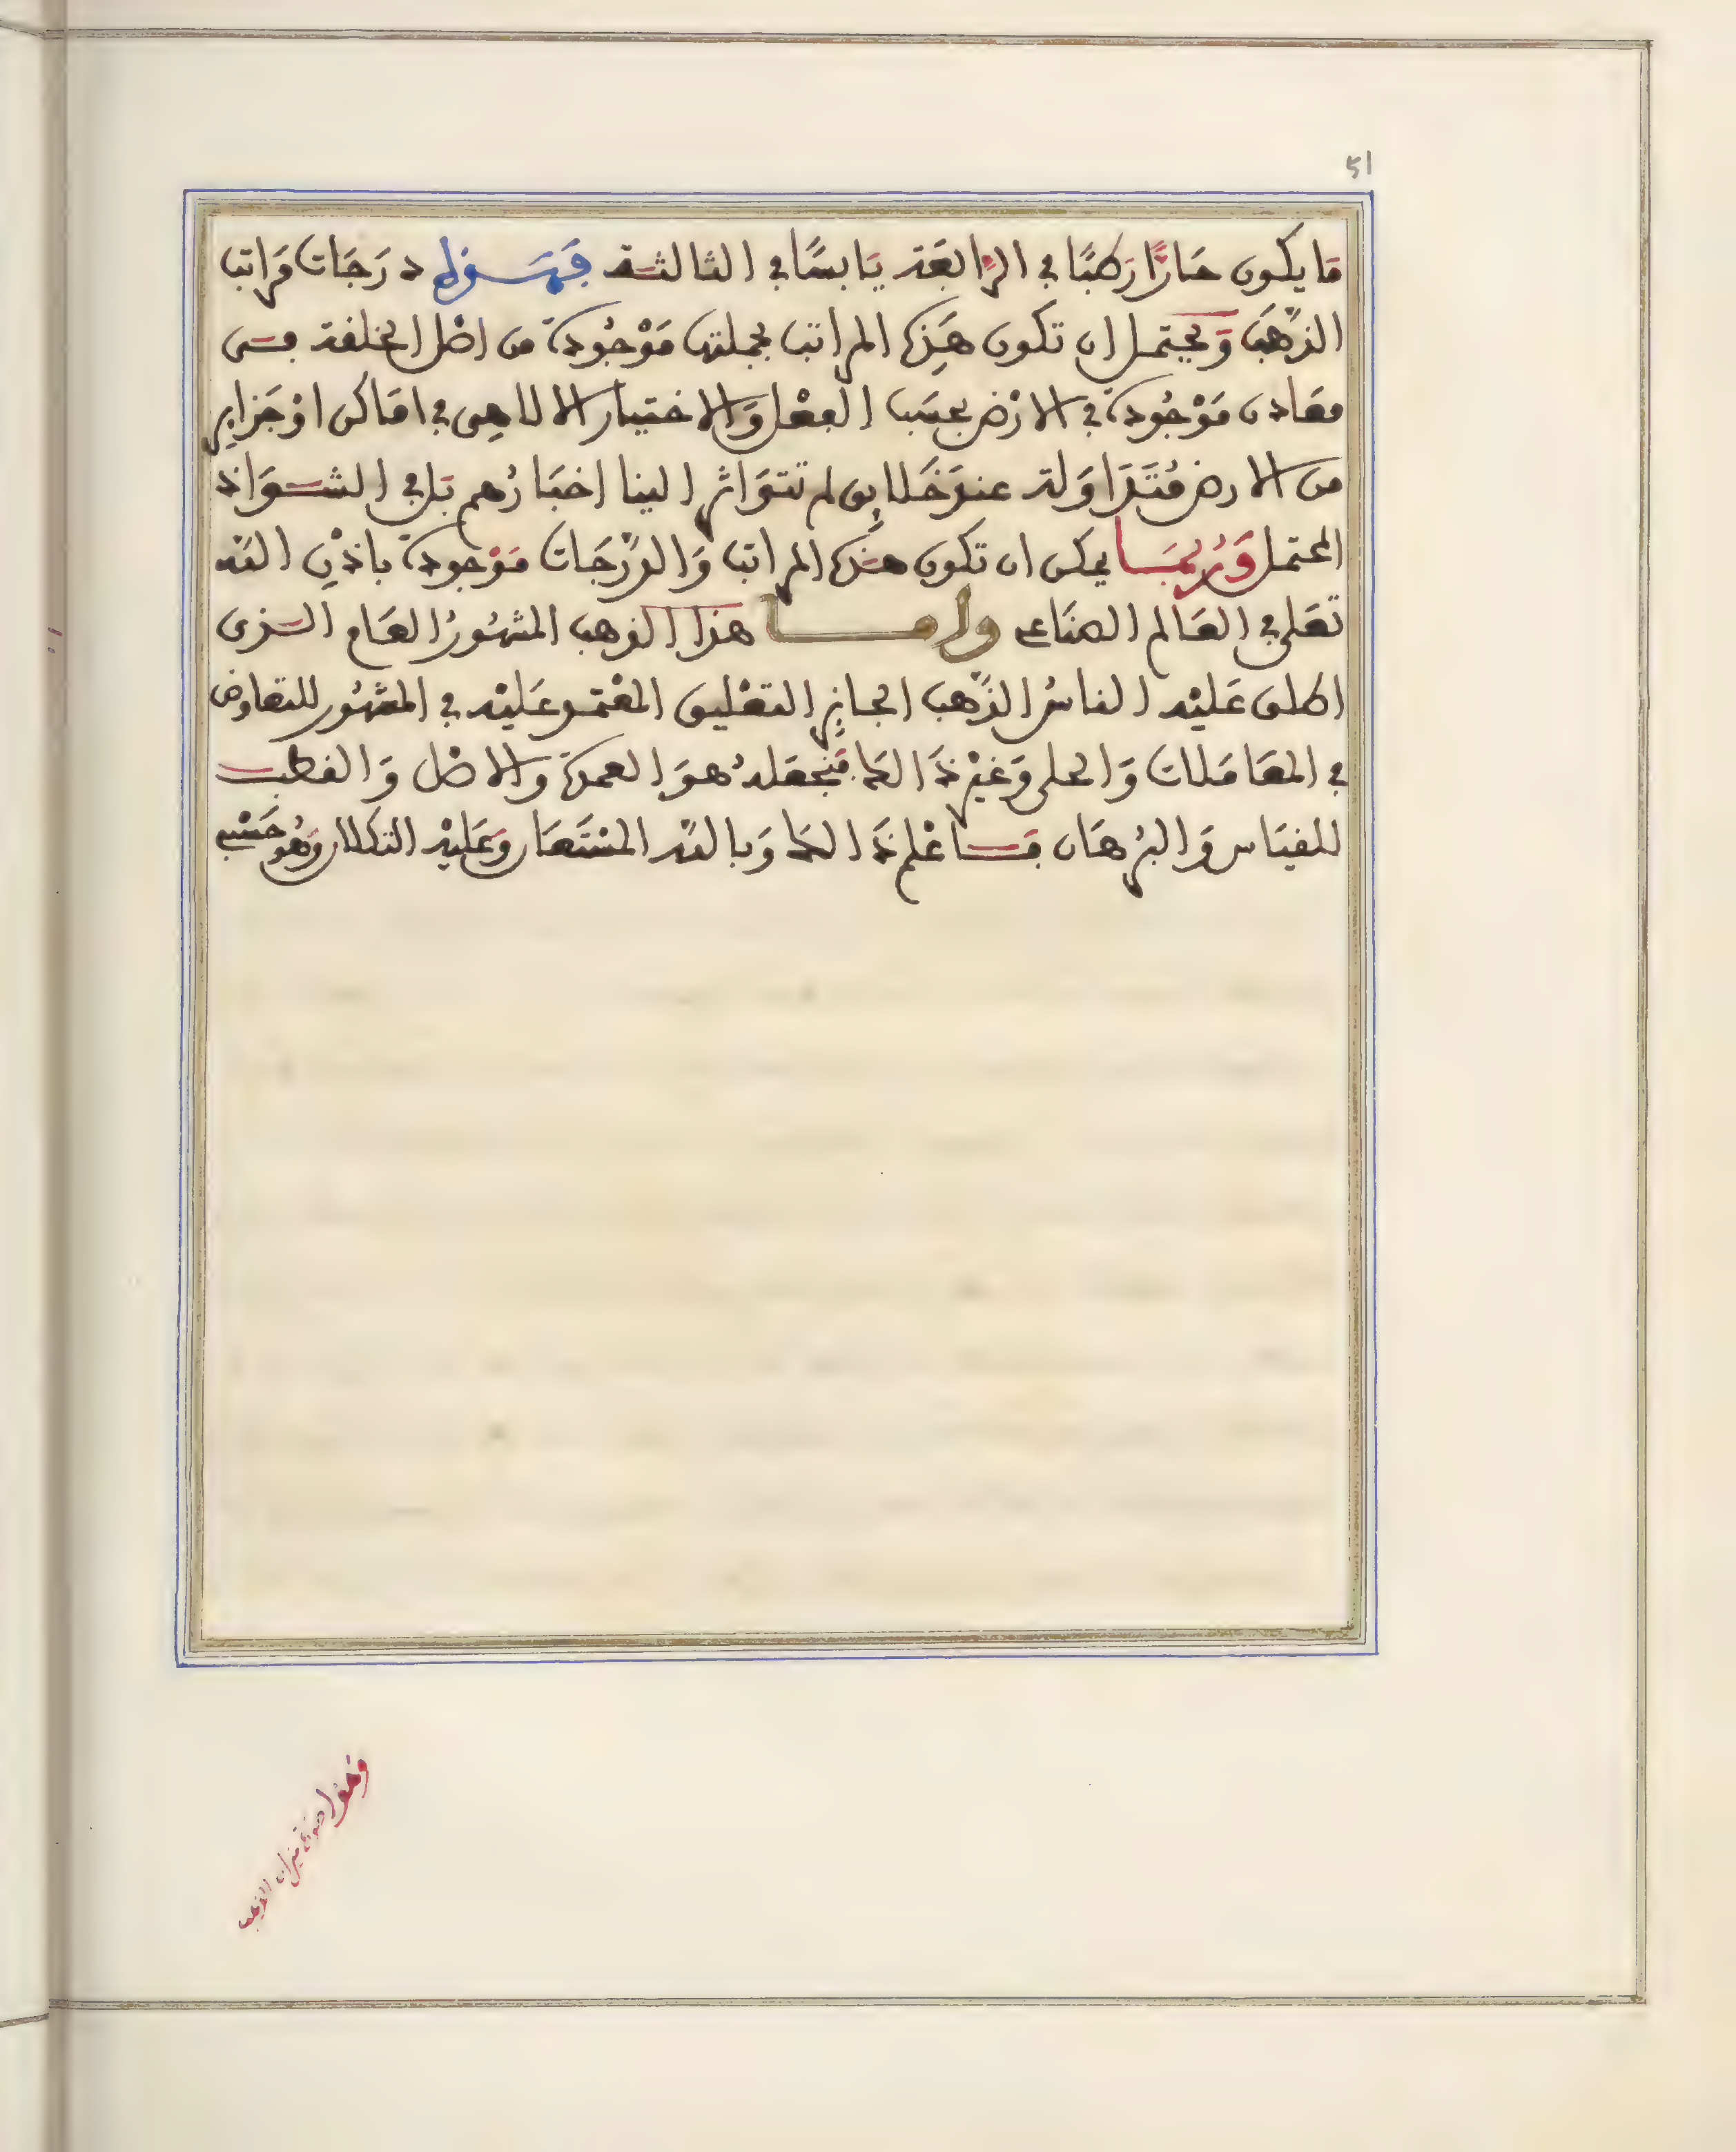 51
مَا يكون حَارًّا رَطبًا في الرّابعَة يَابسًا في الثالثة فهَـؤلاء دَرَجَات مَراتب
الذّهَب وَيحتمل ان تكون هَذِه المراتب بجملتها مَوْجُودة من اصْل الخلقة في
معَادن مَوْجُودة في الارْض بحسَب الفعْل وَالاختيار الالاهِي في امَاكن اوْ جَزاير
من الارض مُتَدَاوَلة عند خَلايق لم تتوَاتر الينا اخبَارُهم بَل في الشـوَاذ
المحتمل وَرُبمَـا يمكن ان تكون هذه المراتب وَالدّرَجَات مَوْجودة باذْنِ الله
تعَلى في العَالم الصنَاعي وامـا هذا الذهب المشهُورُ العَام الذي
اطلق عَليْه الناسُ الذّهب الجايز التعْليق المعْتمد عَليْه في المشهُور للتعاوض
في المعَامَلات وَالحلي وَغيْر ذَالك فنجعَلهُ هوَ العمدة وَالاصْل وَالقطب
للقيَاس وَالبرْهَان فـاعْلم ذَالك وَبالله المسْتَعَان وَعَليْه التكلان وَهُو حَسْبي
وَهَذا صورة ميزان الذهب